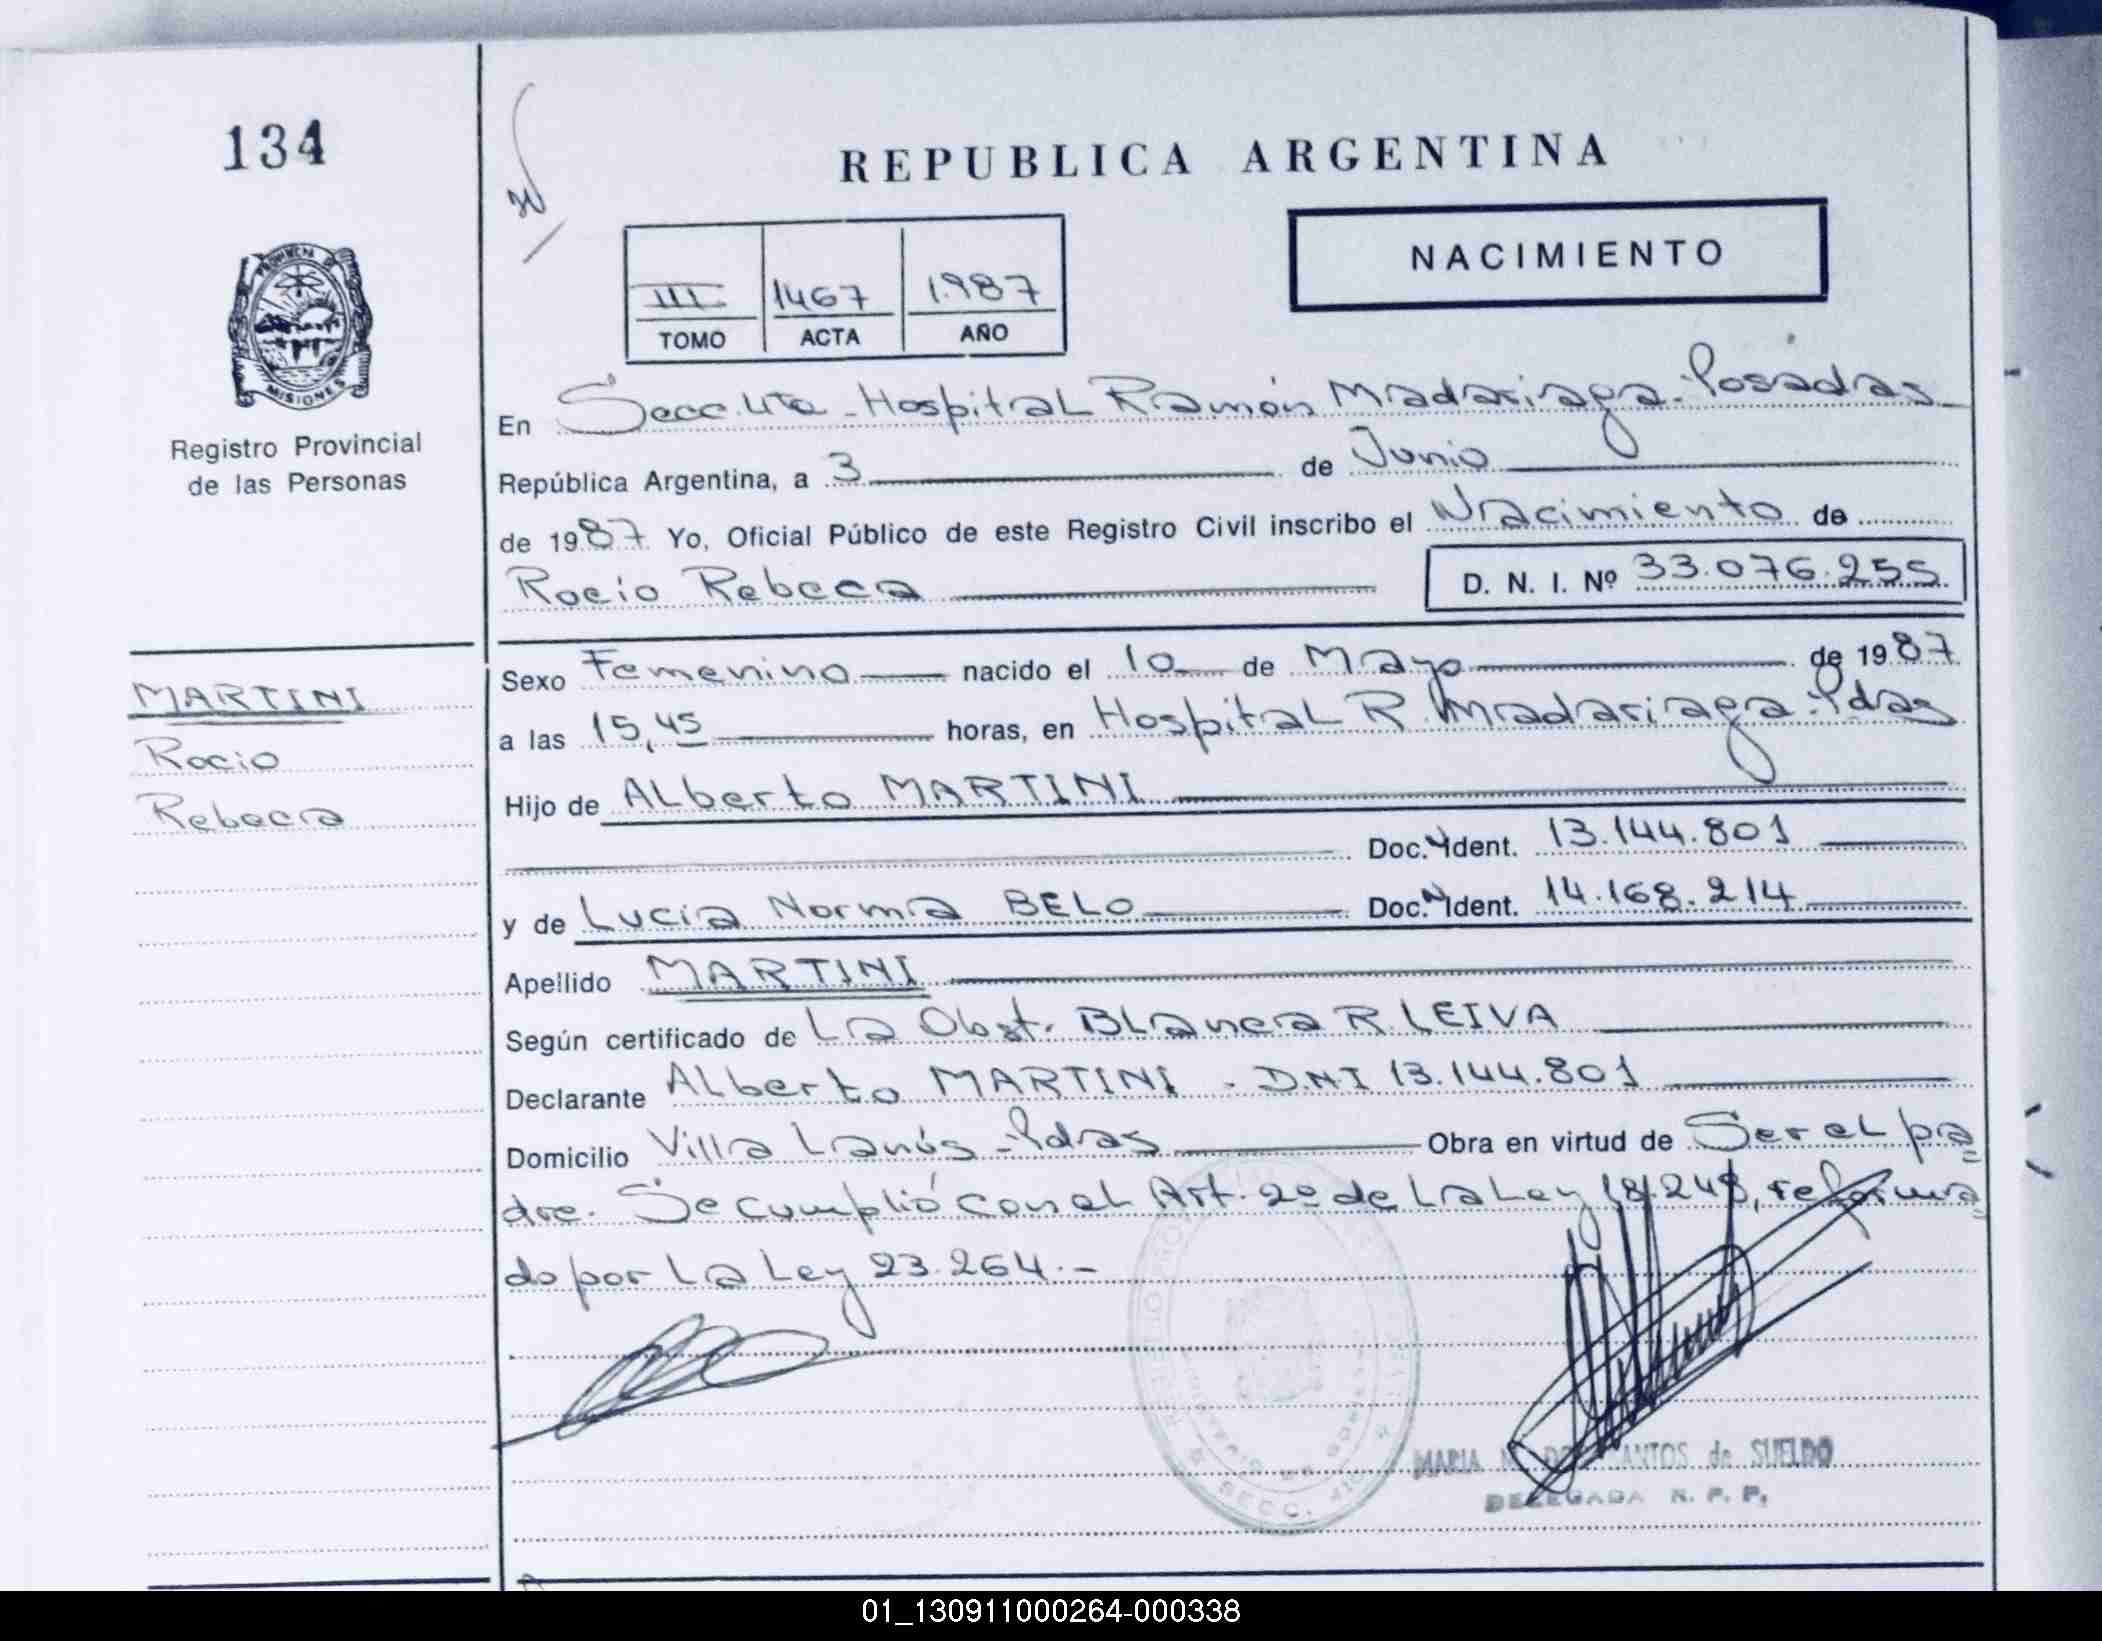 134
REPUBLICA ARGENTINA
NACIMIENTO
III 1467 1.987
TOMO ACTA AÑO
PROVINCIA DE
MISIONES
Registro Provincial
de las Personas
En Secc. 4ta - Hospital Ramón Madariaga - Posadas
República Argentina, a 3 de Junio
de 1987 Yo, Oficial Público de este Registro Civil inscribo el Nacimiento de
Rocio Rebeca D. N. I. Nº 33.076.255
MARTINI
Rocio
Rebeca
Sexo Femenino nacido el 10 de Mayo de 1987
a las 15,45 horas, en Hospital R. Madariaga - Pdas
Hijo de ALberto MARTINI
Doc. Ident. 13.144.801
y de Lucia Norma BELO Doc. Ident. 14.168.214
Apellido MARTINI
Según certificado de La Obst. BLanca R. LEIVA
Declarante ALberto MARTINI - D.N.I 13.144.801
Domicilio Villa Lanús - Pdas Obra en virtud de Ser el pa=
dre. Se cumplió con el Art. 2º de La Ley 18.248, reforma=
do por La Ley 23.264.-
MARIA SANTOS de SUELDO
DELEGADA R. P. P.
SECC. 4ta
01_130911000264-000338